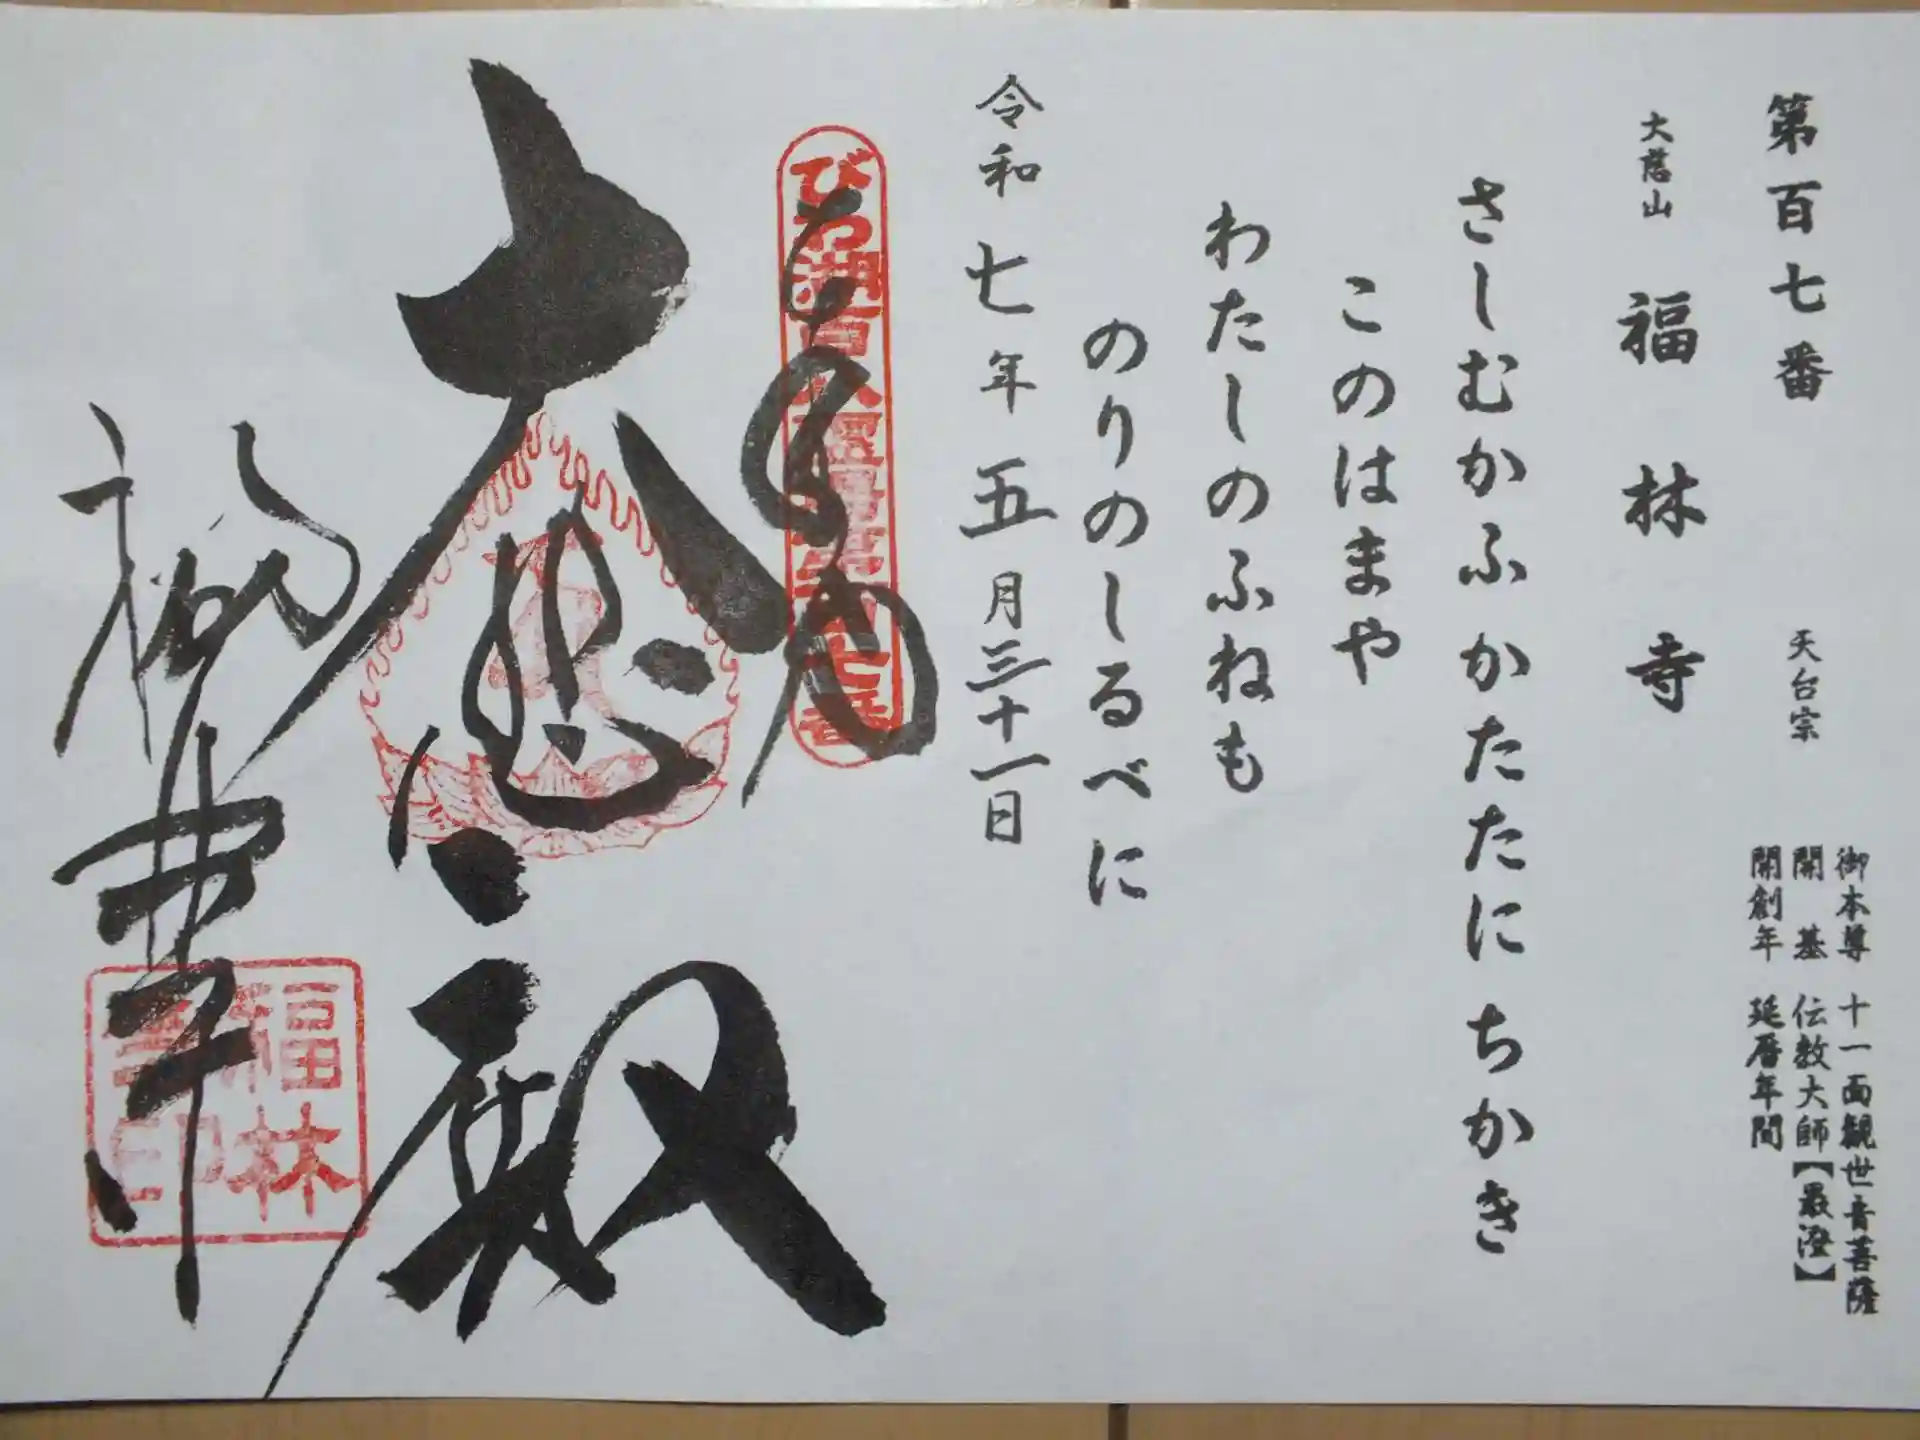 第百七番 天台宗
御本尊 十一面観世音菩薩
開基 伝教大師【最澄】
開創年 延暦年間
大慈山 福林寺
さしむかふかたたにちかき
このはまや
わたしのふねも
のりのしるべに
令和七年五月三十一日
びわ湖百八霊場第百七番
大悲殿
福林寺
福林
寺印